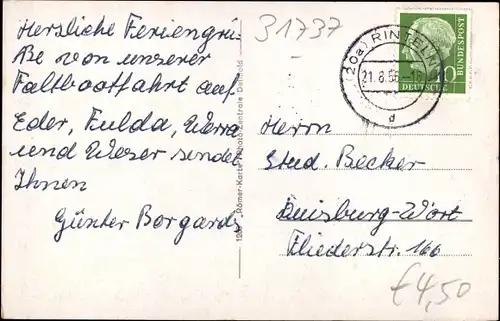 Herzliche Feriengrü-
ße von unserer
Faltbootfahrt auf
Eder, Fulda, Werra
und Weser sendet
Ihnen
Günter Borgards
"Römer-Karte" Photo-Zentrale Detmold
31737
(20a) RINTELN
21.8.56
d
10
DEUTSCHE
BUNDESPOST
Herrn
Stud. Becker
Duisburg-Wort
Fliederstr. 166
€4,50